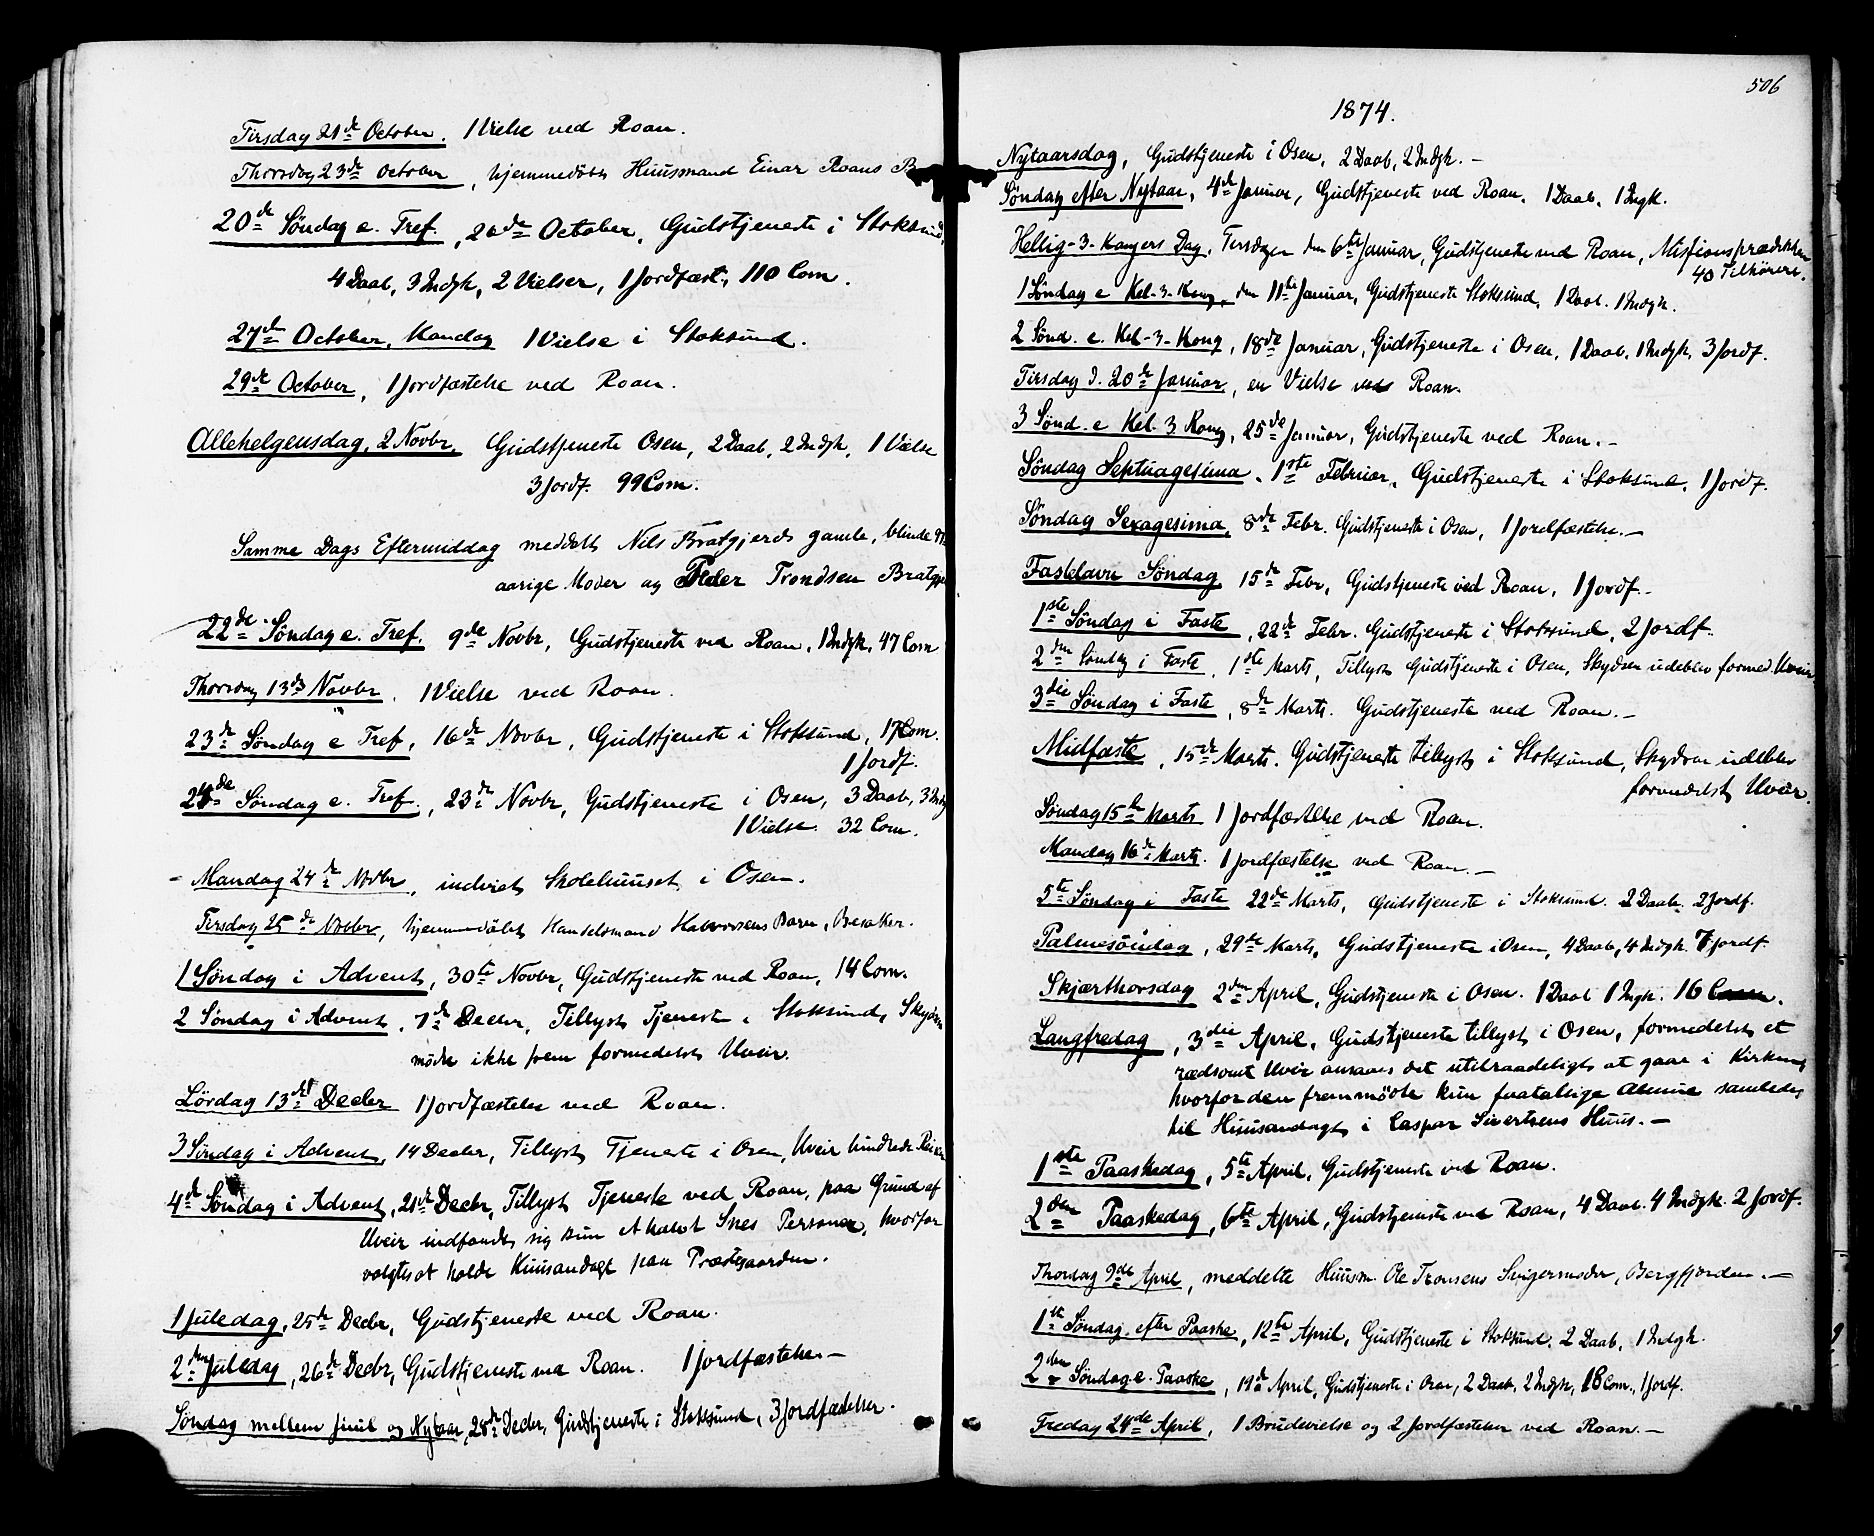 Tirsdag 21de October. 1 Vielse ved Roan.
Thorsdag 23de October, hjemmedöbt Huusmand Einar Roans
20de Søndag e. Tref., 26de October, Gudstjeneste i Stoksund,
4 Daab, 3 Indgk, 2 Vielser, 1 Jordfæst., 110 Com.
27de October, Mandag 1 Vielse i Stoksund.
29de October, 1 Jordfæstelse ved Roan.
Allehelgensdag, 2 Novbr. Gudstjeneste Osen, 2 Daab, 2 Indgk, 1 Vielse
3 Jordf. 99 Com.
Samme Dags Eftermiddag meddelt Nils Bratgjerds gamle, blinde
aarige Moder og Peder Trondsen
22de Søndag e. Tref. 9de Novbr, Gudstjeneste ved Roan, 1 Indgk, 47 Com
Thorsdag 13de Novbr. 1 Vielse ved Roan.
23de Søndag e Tref, 16de Novbr, Gudstjeneste i Stoksund, 17 Com.
1 Jordf.
24de Søndag e. Tref., 23de Novbr, Gudstjeneste i Osen, 3 Daab, 3 Indg
1 Vielse. 32 Com.
- Mandag 24de Novbr, indviet Skolehuuset i Osen.
Tirsdag 25de Novbr, hjemmedöbt Handelsmand Halvorsens Barn, Besaker.
1 Søndag i Advent, 30te Novbr, Gudstjeneste ved Roan, 14 Com.
2 Søndag i Advent, 7de Decbr, Tillyst Tjeneste i Stoksund, Skydsen
mødte ikke frem formedelst Uveir.
Lördag 13de Decbr 1 Jordfæstelse ved Roan.
3 Søndag i Advent, 14 Decbr, Tillyst Tjeneste i Osen, Uveir hindrede Reisen
4de Søndag i Advent, 21de Decbr, Tillyst Tjeneste ved Roan, paa Grund af
Uveir indfandt sig kun et halvt Snes Personer, hvorfor
valgtes at holde Huusandagt paa Præstegaarden.
1 Juledag, 25de Decbr, Gudstjeneste ved Roan.
2den Juledag, 26de Decbr, Gudstjeneste ved Roan. 1 Jordfæstelse. -
Søndag mellem Juul og Nytaar, 28de Decbr, Gudstjeneste i Stoksund, 3 Jordfæstelser.
506
1874.
Nytaarsdag, Gudstjeneste i Osen, 2 Daab, 2 Indgk. -
Søndag efter Nytaar, 4de Januar, Gudstjeneste ved Roan. 1 Daab. 1 Ingk.
Hellig-3-Kongers Dag, Tirsdagen den 6te Januar, Gudstjeneste ved Roan, Missionsprædiken
40 Tilhörere.
1 Søndag e Hel-3-Kong, den 11te Januar, Gudstjeneste Stoksund, 1 Daab. 1 Indgk.
2 Sønd. e. Hel-3-Kong, 18de Januar, Gudstjeneste i Osen, 1 Daab, 1 Indgk, 3 Jordf.
Tirsdag d. 20de Januar, en Vielse ved Roan.
3 Sønd. e Hel. 3. Kong, 25de Januar, Gudstjeneste ved Roan. -
Søndag Septuagesima, 1ste Februar, Gudstjeneste i Stoksund, 1 Jordf.
Søndag Sexagesima, 8de Febr. Gudstjeneste i Osen, 1 Jordfæstelse. -
Fastelavn Søndag 15de Febr, Gudstjeneste ved Roan, 1 Jordf. -
1ste Søndag i Faste, 22de Febr. Gudstjeneste i Stoksund, 2 Jordf.
2den Søndag i Faste, 1ste Marts, Tillyst Gudstjeneste i Osen, Skydsen udeblev formed. Uveir.
3die Søndag i Faste, 8de Marts. Gudstjeneste ved Roan. -
Midfaste, 15de Marts. Gudstjeneste tillyst i Stoksund, Skydsen udeblev
formedelst Uveir.
Søndag 15de Marts 1 Jordfæstelse ved Roan.
Mandag 16de Marts. 1 Jordfæstelse ved Roan. -
5te Søndag i Faste 22de Marts, Gudstjeneste i Stoksund. 2 Daab. 2 Jordf.
Palmesöndag, 29de Marts, Gudstjeneste i Osen, 4 Daab, 4 Indgk. 7 Jordf.
Skjærthorsdag 2den April, Gudstjeneste i Osen. 1 Daab 1 Ingk. 16 Com.
Langfredag, 3die April, Gudstjeneste tillyst i Osen, formedelst et
rædsomt Uveir ansaaes det utilraadeligt at gaae i Kirken,
hvorfor den fremmödte kun faatallige Almue samledes
til Huusandagt i Caspar Sivertsens Huus. -
1ste Paaskedag, 5te April, Gudstjeneste ved Roan.
2den Paaskedag, 6te April, Gudstjeneste ved Roan, 4 Daab. 4 Indgk. 2 Jordf.
Thorsdag 9de April, meddelte Huusm. Ole Tronsens Svigermoder, Bergfjorden. -
1ste Søndag efter Paaske, 12te April, Gudstjeneste i Stoksund. 2 Daab, 1 Indgk.
2den Søndag e. Paaske, 19de April, Gudstjeneste i Osen, 2 Daab, 2 Indgk, 18 Com., 1 Jordf.
Fredag 24de April, 1 Brudevielse og 2 Jordfæstelser ved Roan. -